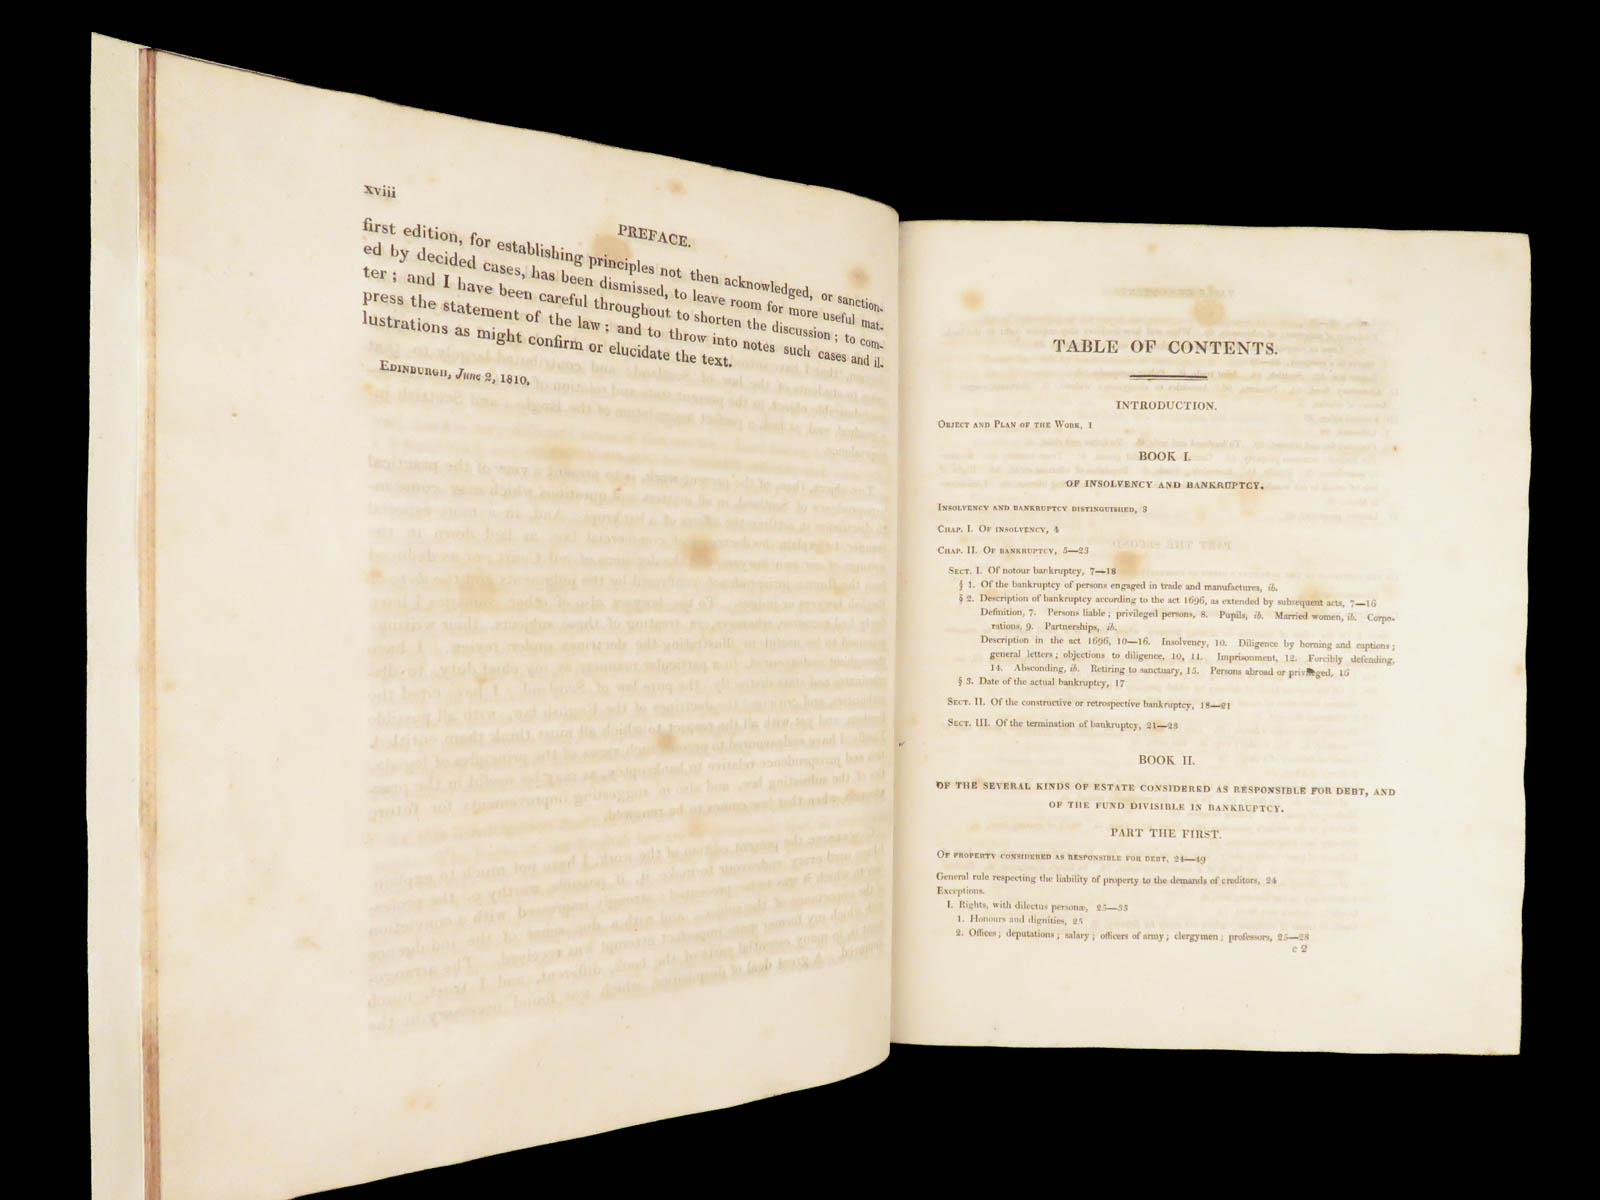 xviii
PREFACE.
first edition, for establishing principles not then acknowledged, or sanction-
ed by decided cases, has been dismissed, to leave room for more useful mat-
ter; and I have been careful throughout to shorten the discussion; to com-
press the statement of the law; and to throw into notes such cases and il-
lustrations as might confirm or elucidate the text.
EDINBURGH, June 2, 1810.
TABLE OF CONTENTS.
INTRODUCTION.
OBJECT AND PLAN OF THE WORK, 1
BOOK I.
OF INSOLVENCY AND BANKRUPTCY.
INSOLVENCY AND BANKRUPTCY DISTINGUISHED, 3
CHAP. I. OF INSOLVENCY, 4
CHAP. II. OF BANKRUPTCY, 5—23
SECT. I. Of notour bankruptcy, 7—18
§ 1. Of the bankruptcy of persons engaged in trade and manufactures, ib.
§ 2. Description of bankruptcy according to the act 1696, as extended by subsequent acts, 7—16
Definition, 7. Persons liable; privileged persons, 8. Pupils, ib. Married women, ib. Corpo-
rations, 9. Partnerships, ib.
Description in the act 1696, 10—16. Insolvency, 10. Diligence by horning and caption;
general letters; objections to diligence, 10, 11. Imprisonment, 12. Forcibly defending,
14. Absconding, ib. Retiring to sanctuary, 15. Persons abroad or privileged, 16
§ 3. Date of the actual bankruptcy, 17
SECT. II. Of the constructive or retrospective bankruptcy, 18—21
SECT. III. Of the termination of bankruptcy, 21—23
BOOK II.
OF THE SEVERAL KINDS OF ESTATE CONSIDERED AS RESPONSIBLE FOR DEBT, AND
OF THE FUND DIVISIBLE IN BANKRUPTCY.
PART THE FIRST.
OF PROPERTY CONSIDERED AS RESPONSIBLE FOR DEBT, 24—49
General rule respecting the liability of property to the demands of creditors, 24
Exceptions.
I. Rights, with dilectus personæ, 25—35
1. Honours and dignities, 25
2. Offices; deputations; salary; officers of army; clergymen; professors, 25—28
c 2